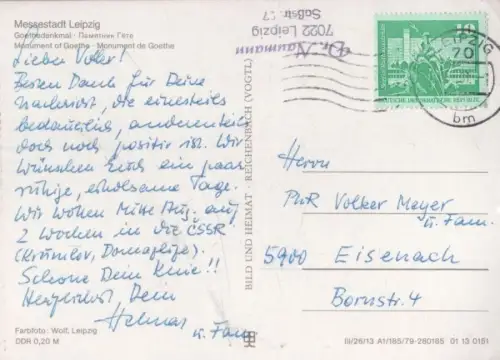 Messestadt Leipzig
Goethedenkmal · Памятник Гете
Monument of Goethe · Monument de Goethe
Lieber Volker!
Besten Dank für Deine
Nachricht, die einesteils
bedauerlich, anderenteils
doch noch positiv ist. Wir
wünschen Euch ein paar
ruhige, erholsame Tage.
Wir wollen Mitte Aug. auf
2 Wochen in die ČSSR
Schone Dein Knie!!
Herzlichst, Dein
Helmar
u. Fam.
Farbfoto: Wolf, Leipzig
DDR 0,20 M
BILD UND HEIMAT · REICHENBACH (VOGTL)
Dr. Naumann
7022 Leipzig
10
DEUTSCHE DEMOKRATISCHE REPUBLIK
LEIPZIG
70
bm
Herrn
Volker Meyer
u. Fam.
5900 Eisenach
Bornstr. 4
III/26/13 A1/185/79-280185 01 13 0151